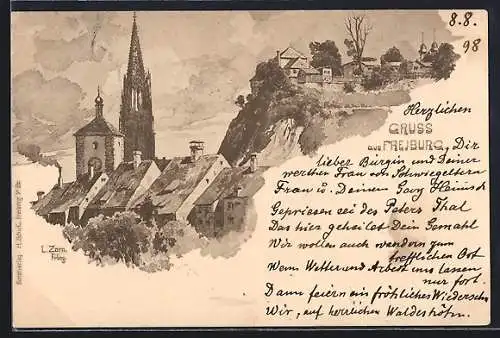 8.8.
98
Herzlichen
GRUSS
aus FREIBURG, Dir
lieber Bürgin und Deiner
werthen Frau von Schwiegeltern
Frau u. Deinem Georg Heinisch
Gepriesen sei des Peters Thal
Das hier geheilet Dein Gemahl
Wir wollen auch wandern zum
trefflichen Ort
Wenn Wetter und Arbeit uns lassen
nur fort.
Dann feiern ein fröhliches Wiedersehn
Wir, auf herrlichen Waldeshöhn.
L. Zorn.
Frbg.
Kunstverlag Freiburg i/B.